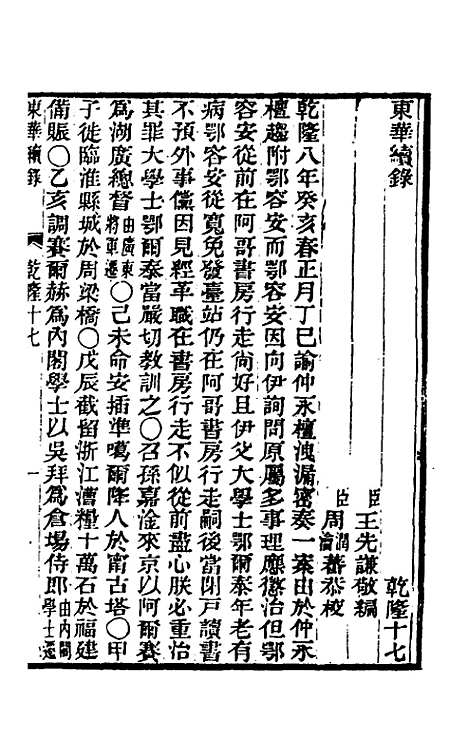 東華續錄
乾隆十七
臣王先謙敬編
臣周潤蕃 周瀹蕃恭校
乾隆八年癸亥春正月丁巳諭仲永檀洩漏密奏一案由於仲永
檀趨附鄂容安而鄂容安因向伊詢問原屬多事理應懲治但鄂
容安從前在阿哥書房行走尚好且伊父大學士鄂爾泰年老有
病鄂容安從寬免發臺站仍在阿哥書房行走嗣後當閉戶讀書
不預外事儻因見經革職在書房行走不似從前盡心朕必重治
其罪大學士鄂爾泰當嚴切教訓之〇召孫嘉淦來京以阿爾賽
爲湖廣總督由廣東將軍遷〇己未命安插準噶爾降人於甯古塔〇甲
子徙臨淮縣城於周梁橋〇戊辰截留浙江漕糧十萬石於福建
備賑〇乙亥調賽爾赫爲內閣學士以吳拜爲倉場侍郎由內閣學士遷
東華續錄 乾隆十七 一